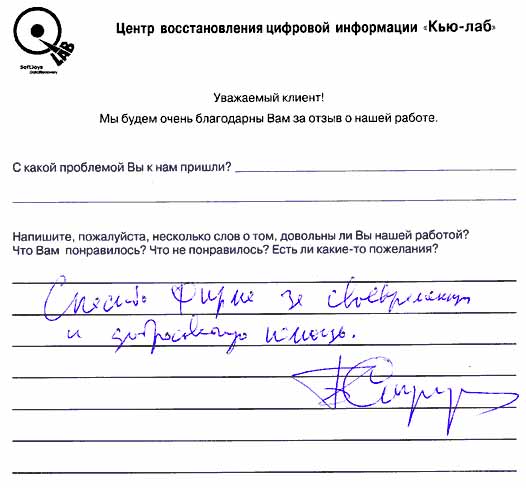 Q LAB
SoftJoys
DataRecovery
Центр восстановления цифровой информации «Кью-лаб»
Уважаемый клиент!
Мы будем очень благодарны Вам за отзыв о нашей работе.
С какой проблемой Вы к нам пришли?
Напишите, пожалуйста, несколько слов о том, довольны ли Вы нашей работой?
Что Вам понравилось? Что не понравилось? Есть ли какие-то пожелания?
Спасибо фирме за своевременную
и добросовестную помощь.